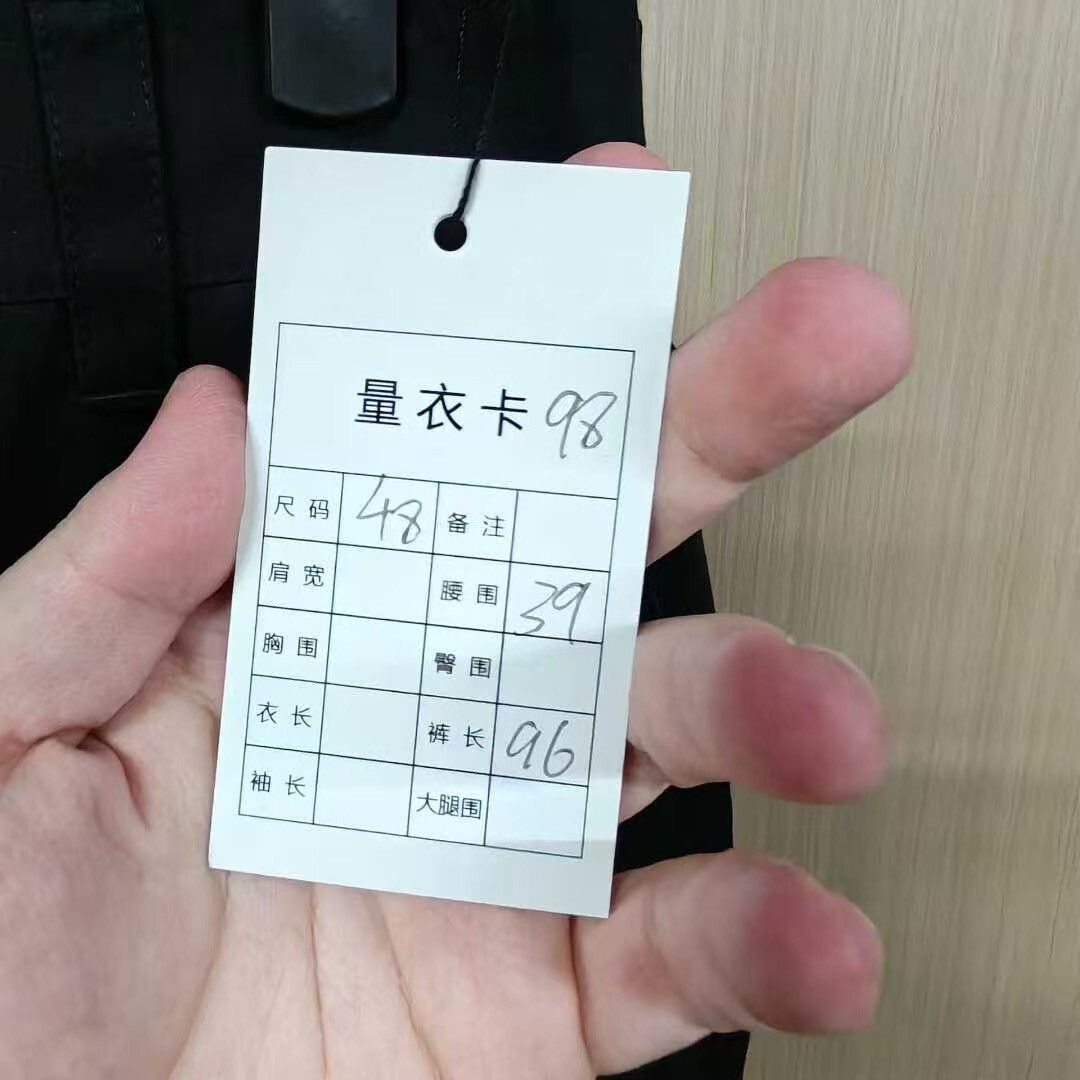 量衣卡 98
尺码 48 备注
肩宽 腰围 39
胸围 臀围
衣长 裤长 96
袖长 大腿围